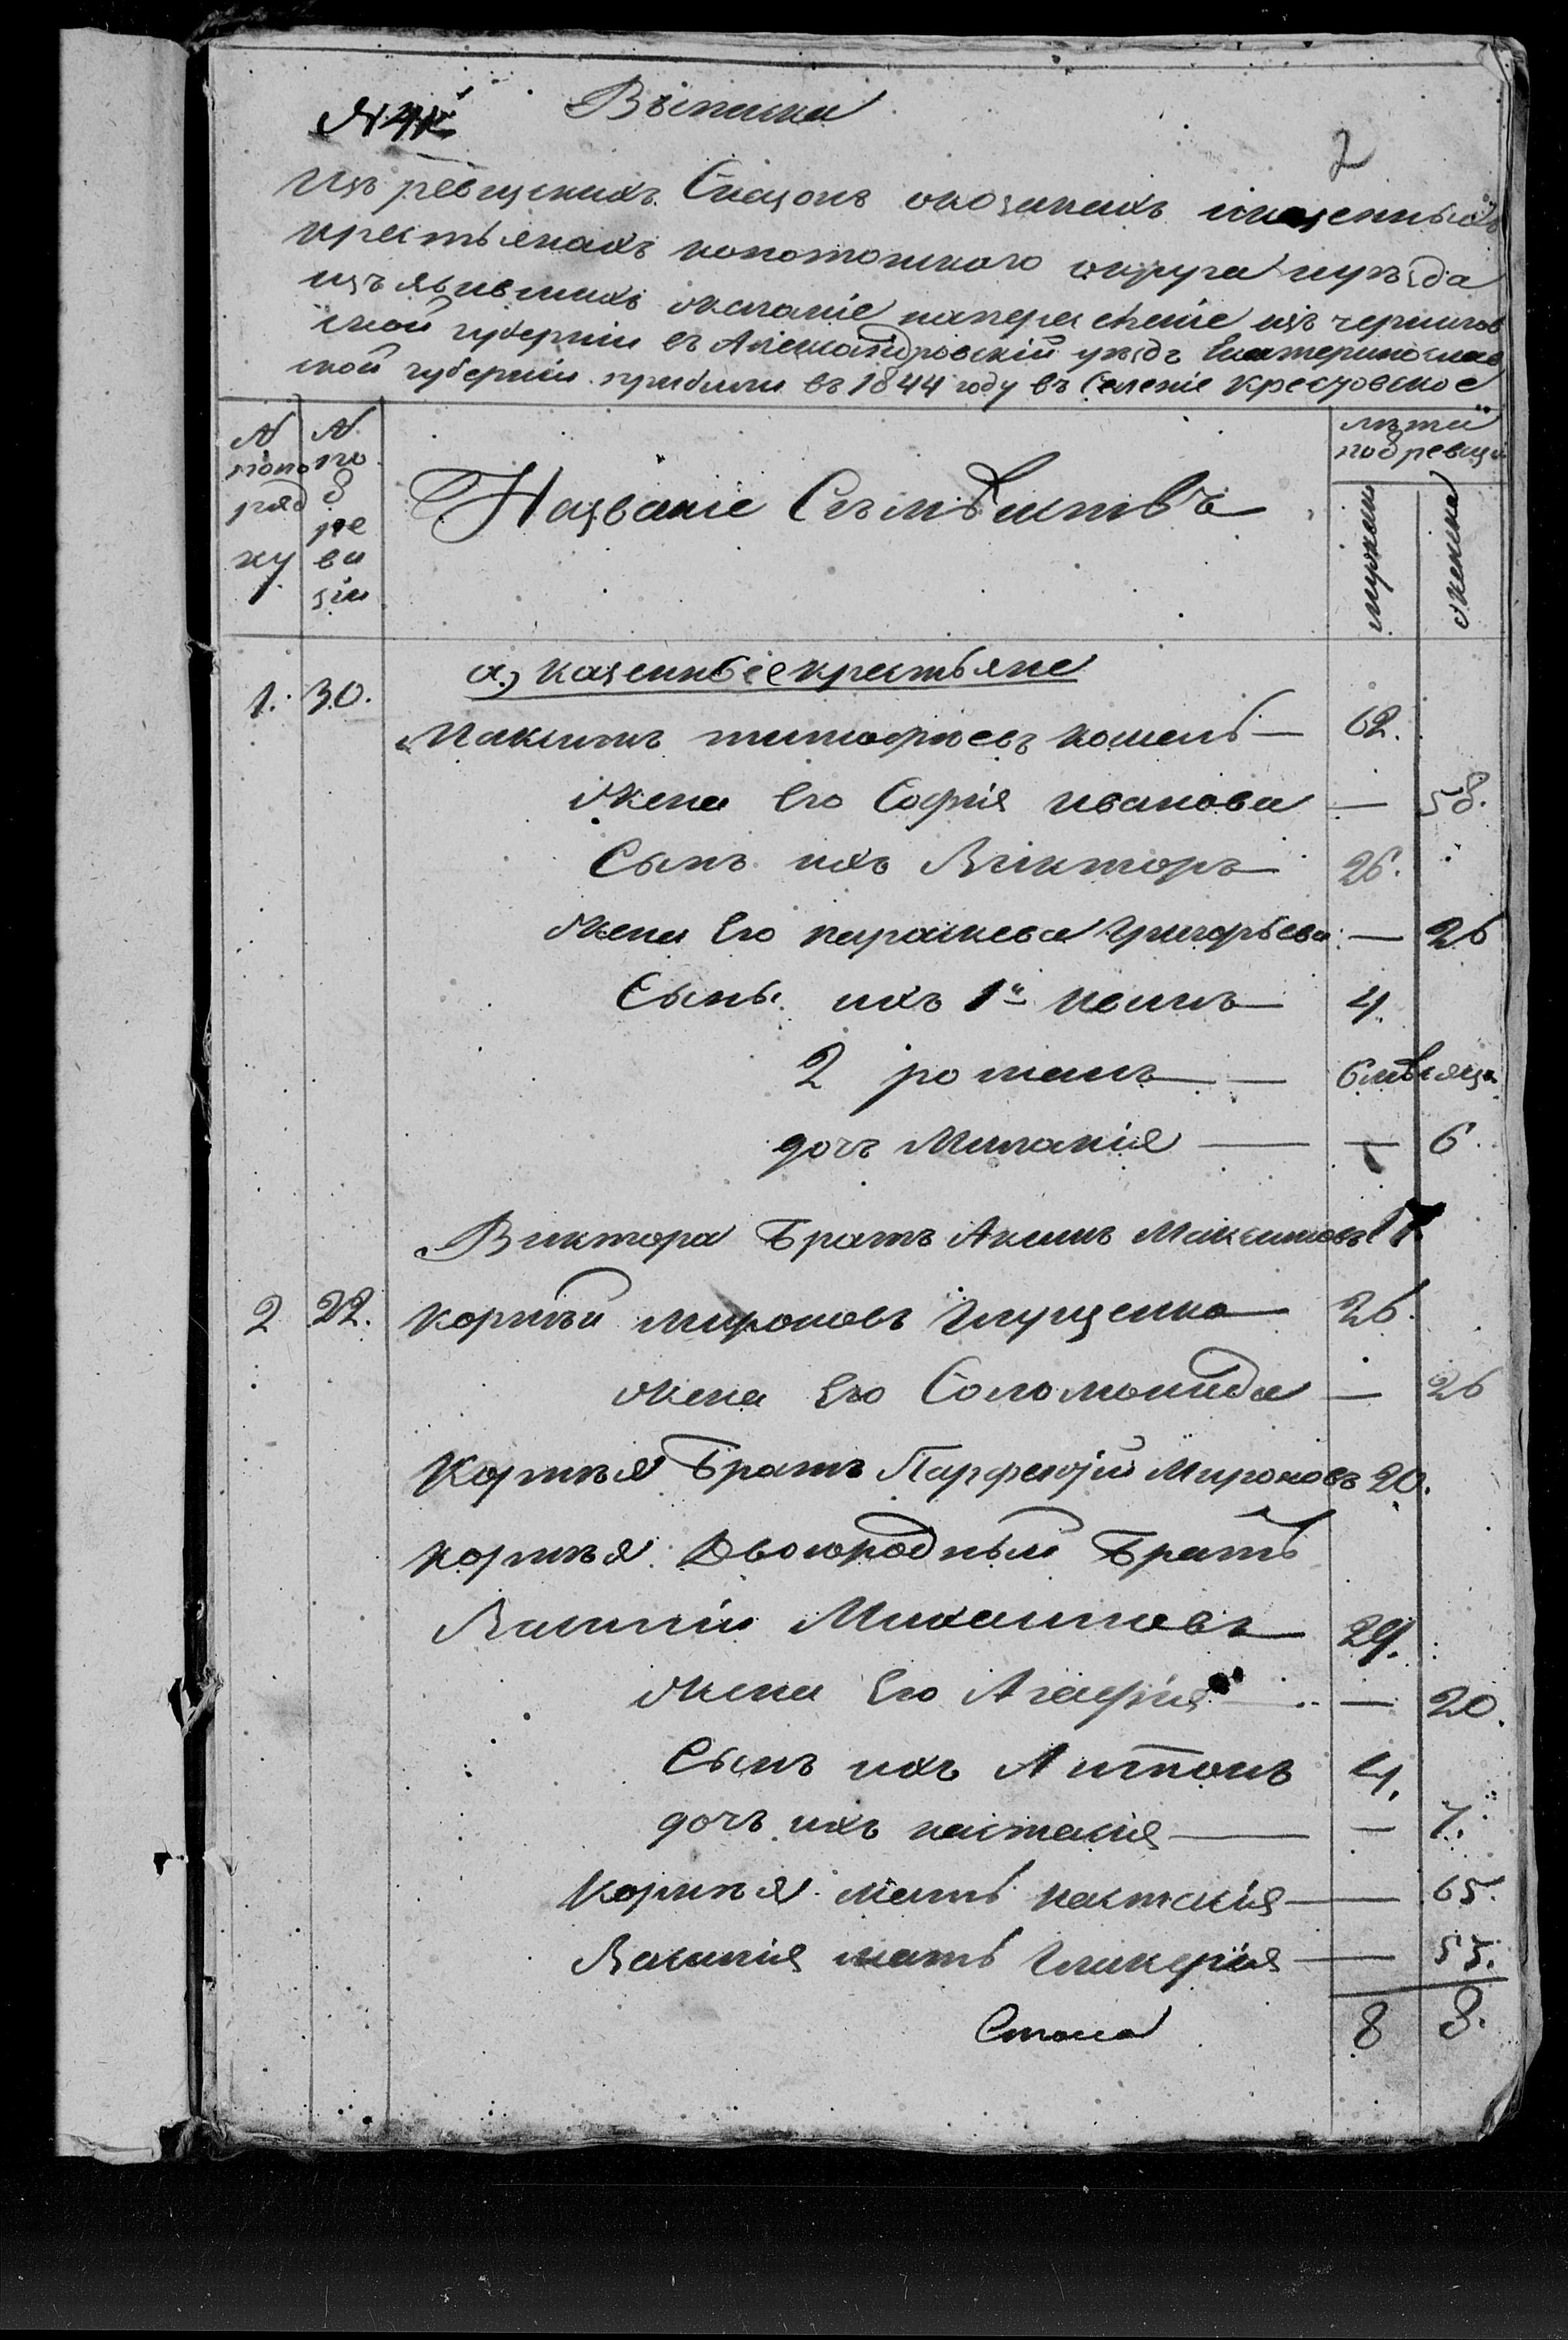 Выписка
2
Изъ ревизскихъ Сказокъ окозакахъ иказенныхъ
крестьянахъ конотопского округа иуѣзда
изъявившихъ желаніе напереселеніе изъ чернигов
ской губерніи въ Александровскій уѣздъ Екатеринослав
ской губерніи прибыли въ 1844 году въ Селеніе Крестовское
N попорядку
N по 8 ревизіи
Названіе Сѣмѣйствъ
лѣта по 8 ревизіи
мужска
женска
а) казенные крестьяне
1. 30. Максимъ тимофѣевъ кошель — 62.
жена Его Софія иванова — 58.
Сынъ ихъ Викторъ 26.
жена Его параскева Григорьева — 26
Сыны ихъ 1й 4.
2 романъ — 6 мѣсяца
дочъ Миланія — 6.
Виктора Братъ Акимъ Максимовъ 17.
2 22. Корнѣй мироновъ Глущенко 26.
жена Его Соломонида — 26
Корнѣя Братъ Парфентій Мироновъ 20.
корнѣя Двоюродный Братъ
Василій Михаиловъ 29.
жена Его Агафія — 20.
Сынъ ихъ Антонъ 4.
дочъ ихъ настасия — 7.
Корнѣя мать настасия — 65.
Василія мать Гликерия — 55.
8 8.